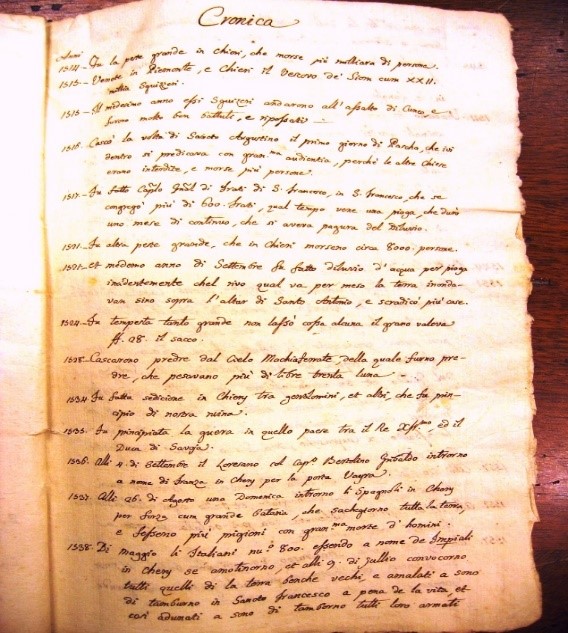 Cronica
Anni
1514 - Fu la peste grande in Chieri, che morse più milliara di persone.
1515 - Venete in Piemonte, e Chieri il Vescovo de' Sion cum XXII.
milia Sguizeri.
1515 - Il medesimo anno essi Sguizeri andarono all'assalto di Cuneo, e
furono molto ben battuti, e ripossati -
1516. Cascò la volta di Sancto Augustino il primo giorno di Pascha, che ivi
dentro si predicava con gran.ma audientia, perchè le altre Chiese
erano interdite, e morse più persone.
1517. Fu fatto Caplo Gnãl di frati di S. Francesco, in S. Francesco, che se
congregò più di 600 frati, qual tempo vene una pioga, che durò
uno mese di continuo, che si aveva pagura del Diluvio.
1521. Fu altra peste grande, che in Chieri morseno circa 8000. persone.
1521. et medemo anno di Settembre fu fatto diluvio d'acqua per pioga
incidentemente chel rivo qual va per mezo la terra inonda-
van sino sopra l'altar di Santo Antonio, e scradicò più case.
1524. Fu tempesta tanto grande non lassò cossa alcuna il grano valeva
ff. 28. il sacco.
1528. Cascarono predre dal Cielo Machiaferrate, della quale furno pre-
dre, che pesavano più di libre trenta luna -
1534. Fu fatta sedicione in Chiery tra gentilomini, et altri, che fu prin-
cipio di nostra ruina.
1535. Fu principiata la guera in quello paese tra il Re ed il
Duca di Savoja.
1536. Alli 4. di Settembre il Loresano col Cap.o Bertolino introrno
a nome di franza in Chery per la porta Vayra.
1537. Alli 26. di Agosto una Domenica introrno li Spagnoli in Chery
per forza cum grande bataria, che sachegiorno tutta la terra,
e fesseno più prigioni con gran.ma morte d'homini -
1538. Di maggio li Italiani nu.o 800. essendo a nome de Impiali
in Chery se amotinorno, et alli 9. di Jullio convocorno
tutti quelli di la terra benche vechi, e amalati a sono
di tamburno in Sancto Francesco a pena de la vita, et
così adunati a sono di tamborno tutti loro armati